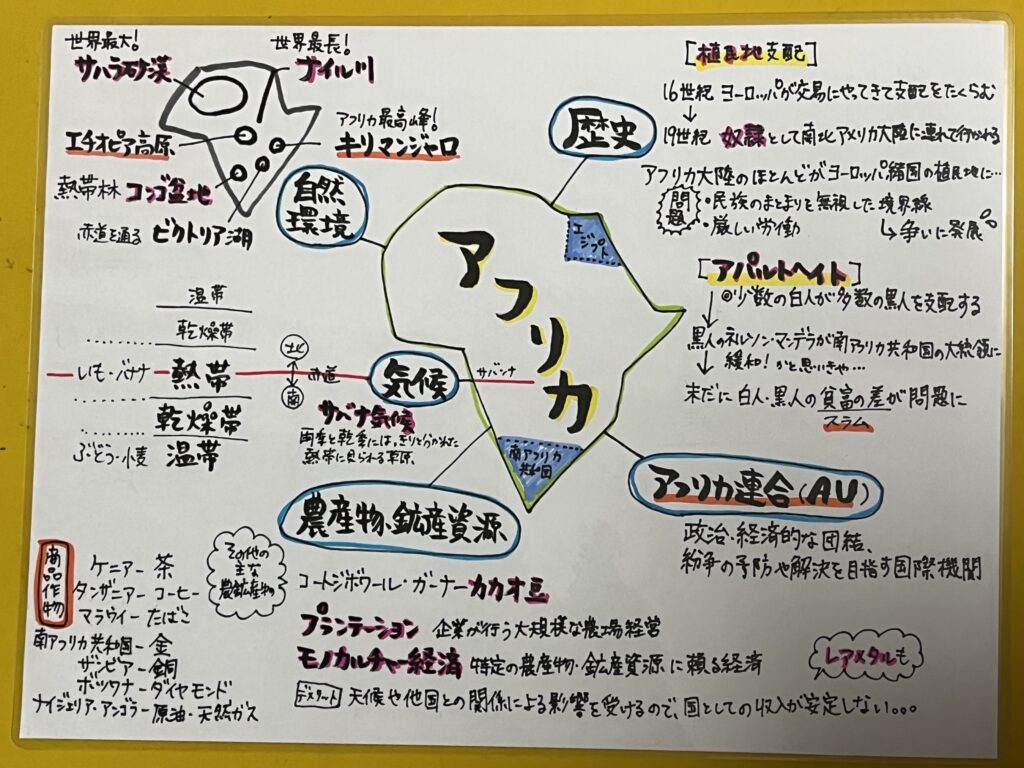 世界最大!
サハラ砂漠
世界最長!
ナイル川
エチオピア高原
アフリカ最高峰!
キリマンジャロ
熱帯林 コンゴ盆地
赤道を通る ビクトリア湖
自然
環境
温帯
乾燥帯
いも・バナナ 熱帯
乾燥帯
ぶどう・小麦 温帯
北
赤道
南
気候
サバンナ
サバナ気候
雨季と乾季にはっきりと分かれた
熱帯に見られる草原。
アフリカ
エジプト
南アフリカ
共和国
歴史
[植民地支配]
16世紀 ヨーロッパが交易にやってきて支配をたくらむ
19世紀 奴隷として南北アメリカ大陸に連れて行かれる
アフリカ大陸のほとんどがヨーロッパ諸国の植民地に…
問題
・民族のまとまりを無視した境界線
・厳しい労働
↳争いに発展
[アパルトヘイト]
◎少数の白人が多数の黒人を支配する
黒人のネルソン・マンデラが南アフリカ共和国の大統領に
緩和!かと思いきや…
未だに白人・黒人の貧富の差が問題に
スラム
アフリカ連合(AU)
政治・経済的な団結、
紛争の予防や解決を目指す国際機関
農産物、鉱産資源
商品作物
ケニアー茶
タンザニアーコーヒー
マラウイーたばこ
南アフリカ共和国ー金
ザンビアー銅
ボツワナーダイヤモンド
ナイジェリア・アンゴラー原油・天然ガス
その他の
主な
農鉱産物
コートジボワール・ガーナーカカオ豆
プランテーション 企業が行う大規模な農場経営
モノカルチャー経済 特定の農産物・鉱産資源に頼る経済
レアメタルも
デメリット 天候や他国との関係による影響を受けるので、国としての収入が安定しない。。。